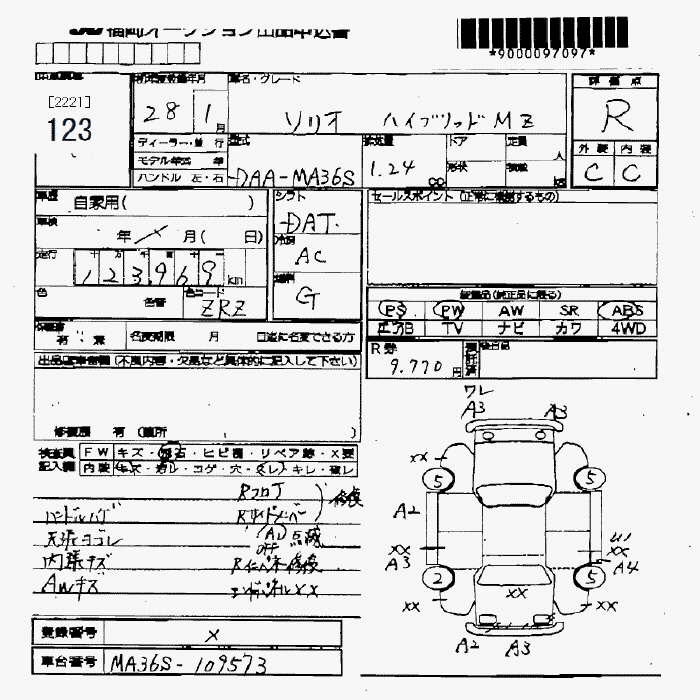 福岡オークション出品申込書
*9000097097*
[2221]
123
初年度登録年月
28 1月
車名・グレード
ソリオ ハイブリッド MZ
評価点
R
外装 内装
C C
ディーラー・並行
モデル年式 年
ハンドル 左・右
型式
DAA-MA36S
排気量
1.24
cc
ドア
形状
定員
人
積載
kg
車歴
自家用( )
車検
年 月( 日)
走行
123,969 km
色
色替
色コード
ZRZ
シフト
DAT
冷房
AC
燃料
G
セールスポイント (正常に機能するもの)
装備品(純正品に限る)
PS PW AW SR ABS
エアB TV ナビ カワ 4WD
R券
9.770 円
後日品
有・無
名変期限 月
出品店申告欄 (不具合内容・欠品など具体的に記入して下さい)
修復歴 有 (箇所 )
検査員
記入欄
FW キズ・飛石・ヒビ割・リペア跡・X要
内装 キズ・汚レ・コゲ・穴・スレ・キレ・破レ
Rフロア
修復
ハンドルハゲ
Rサイドメンバー
天張ヨゴレ
(A)
点検
内張キズ
Rインパネ修復
AWキズ
エンドパネルXX
ワレ
A3 A3
XX
5 5
A2
XX
A3
XX
A4
2 5
XX XX XX
A2 A3
登録番号 X
車台番号 MA36S-109573